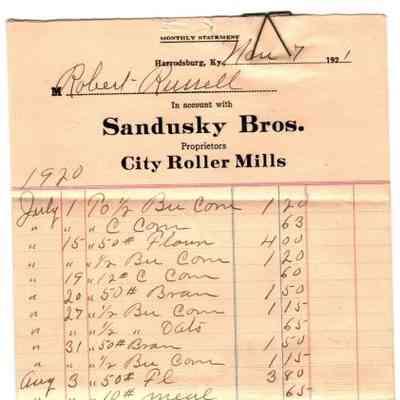 MONTHLY STATEMENT
Harrodsburg, Ky. Mar 7 1921
M Robert Russell
In account with
Sandusky Bros.
Proprietors
City Roller Mills
1920
July 1 To ½ Bu Corn 1 20
" " " C Corn 63
" 15 " 50# Flour 4 00
" " " ½ Bu Corn 1 20
" 19 " 12# C Corn 60
" 20 " 50# Bran 1 50
" 27 " ½ Bu Corn 1 15
" " " ½ " Oats 65
" 31 " 50# Bran 1 50
" " " ½ Bu Corn 1 15
Aug 3 " 50# Fl 3 80
" " " 10# meal 65